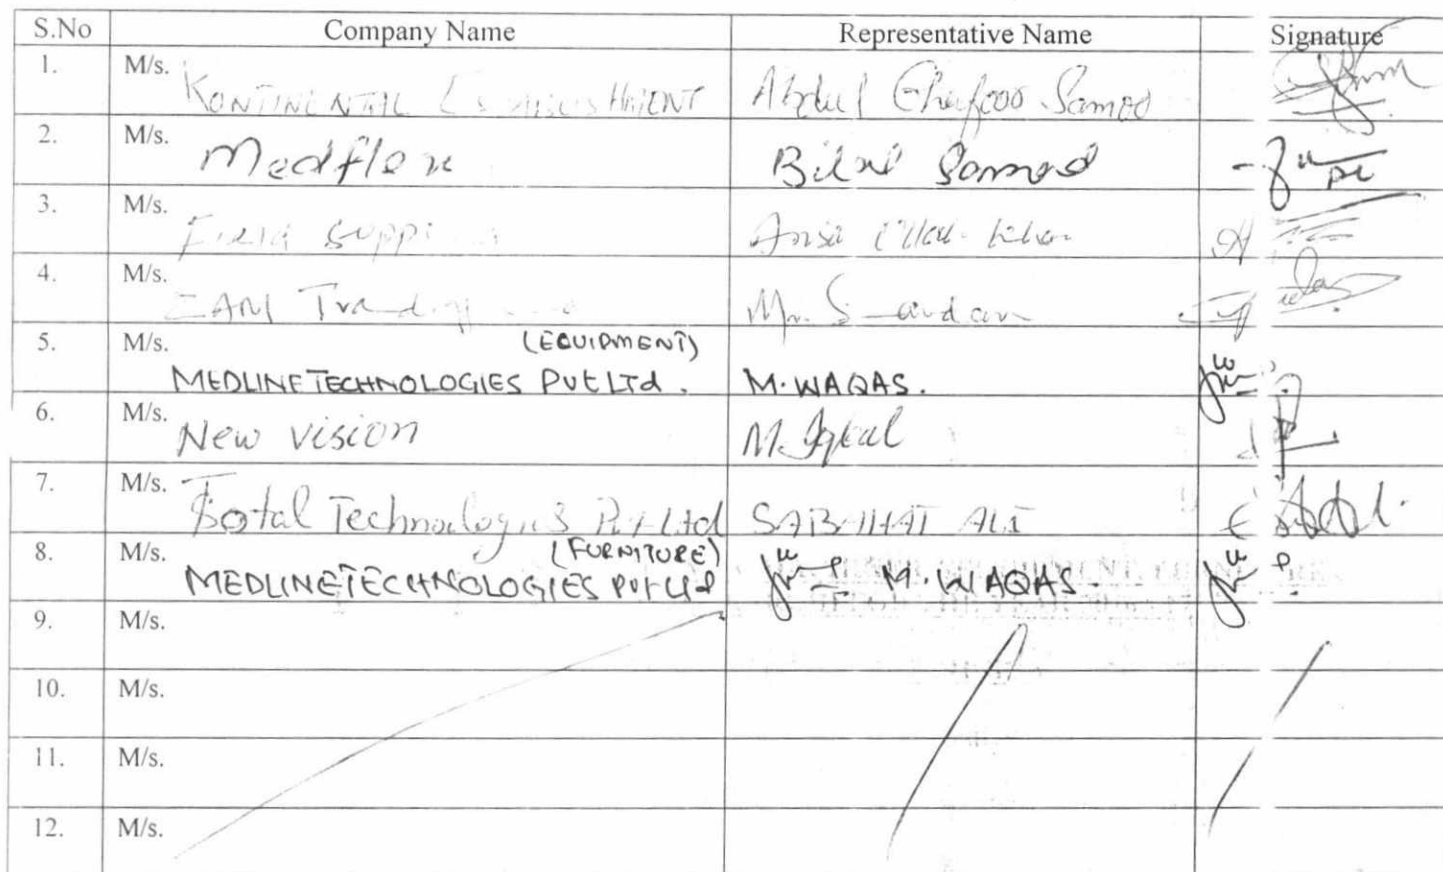 S.No Company Name Representative Name Signature
1. M/s. KONTINENTAL Abdul Ghafoor Samoo
2. M/s. Medflex Bilal Sammad
3. M/s. Field Suppi
4. M/s. ZAM Trading Mr.
5. M/s. (EQUIPMENT)
MEDLINE TECHNOLOGIES Pvt LTd. M. WAQAS.
6. M/s. New vision M. Iqbal
7. M/s. Total Technologies Pvt Ltd SABAHAT ALI
8. M/s. (FURNITURE)
MEDLINE TECHNOLOGIES Pvt Ltd M. WAQAS.
9. M/s.
10. M/s.
11. M/s.
12. M/s.